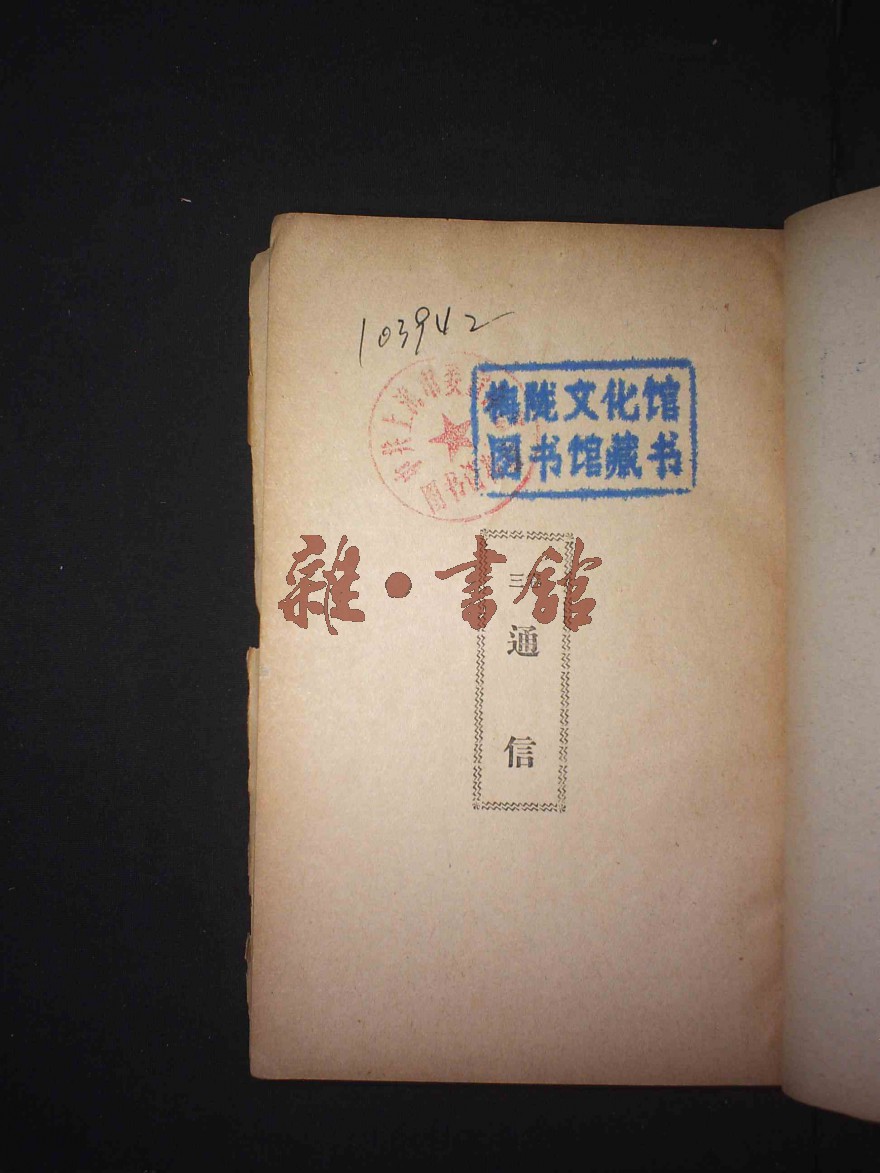 103942
中共上海市委
图书
梅陇文化馆
图书馆藏书
雜·書館
三
通
信